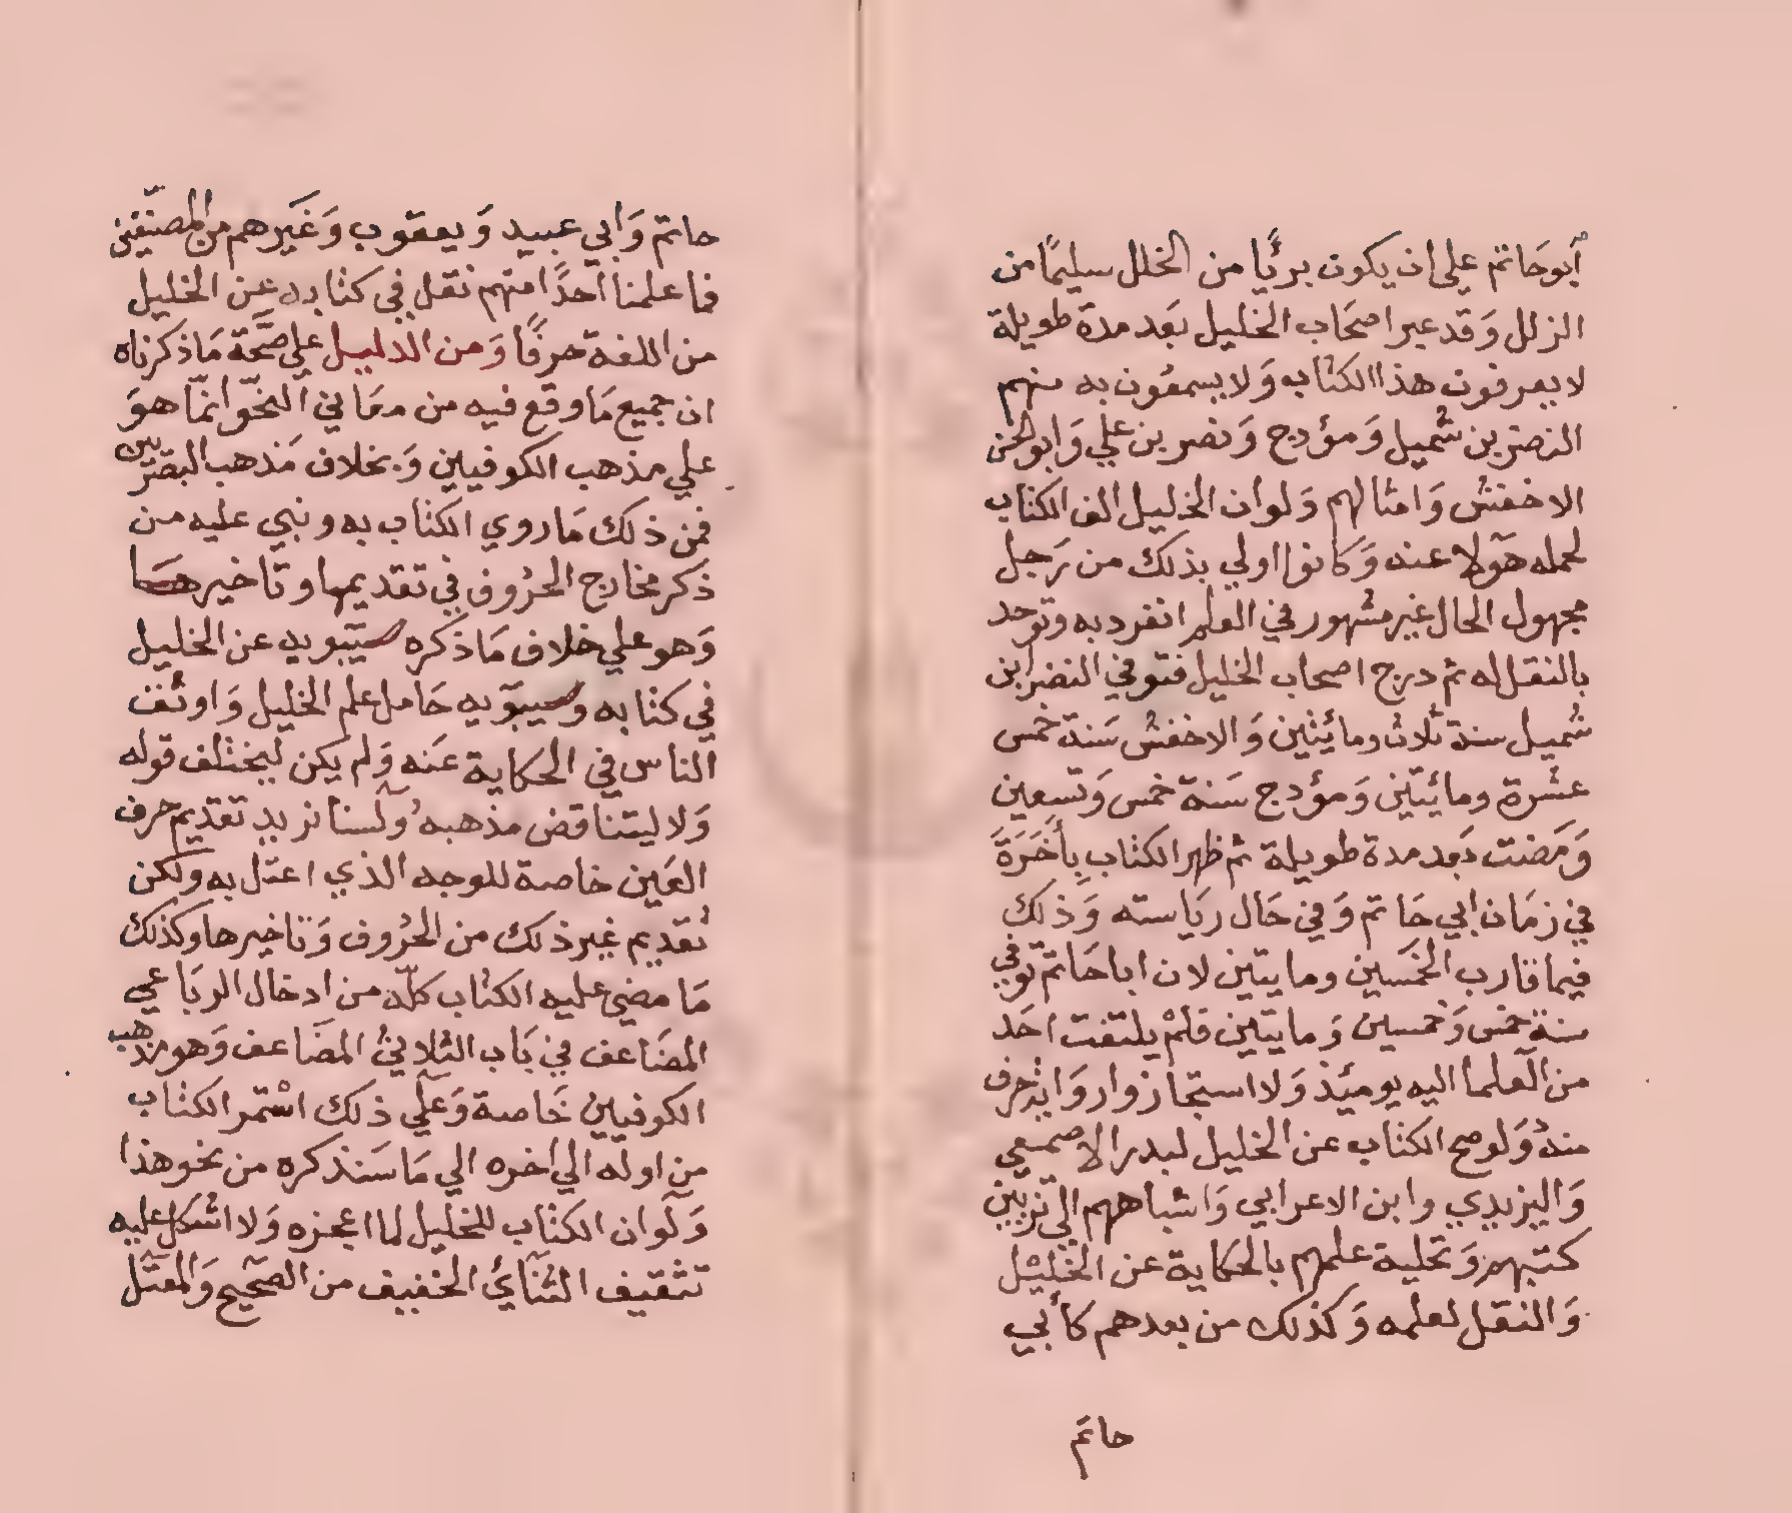 أبو حَاتم علي ان يكون برئًيا من الخلل سليمًا من
الزلل وَقد عبر اصحَاب الخليل بَعد مدة طويلة
لا يعرفون هذا الكتاب وَلا يسمعُون به منهم
النضر بن شُميل وَمؤرج وَنصر بن علي وَابو الحسن
الاخفش وَامثالهم وَلو ان الخليل الف الكتاب
لحمله هَولا عنه وَكانوا اولي بذلك من رَجل
مجهول الحال غير مشهور في العلم انفرد به وتوحد
بالنقل له ثم درج اصحاب الخليل فتوفي النضر ابن
شُميل سنة ثلاث ومائيتين وَالاخفش سَنة خمس
عشرة ومائيتين وَمؤرج سَنة خمس وَتسعين
وَمَضت بَعد مدة طويلة ثم ظهر الكتاب بِأَخَرَةَ
في زمَان ابي حَاتم وَفي حَال ريَاسته وَذلك
فيما قارب الخمَسين ومايتين لان ابا حَاتم توفي
سنة خمس وَخمسين وَمايتين فلمْ يلتفت احَد
من العلما اليه يوميَئذ وَلا استجازوا روَاية حرف
منهُ وَلو صح الكتاب عن الخليل لبدر الاصمعي
وَاليزيدي وابن الاعرابي وَاشباههم الي تزيين
كتبهم وَتحلية علمهم بالحكاية عن الخليل
وَالنقل لعلمه وَكذلك من بعدهم كأبي
حاتم
حاتم وَابي عبيد وَيعقوب وَغَيرهم من المصنّفين
فما علمنا احدًا منهم نقل في كتابه عن الخليل
من اللغة حرفًا وَمن الدليل علي صحَّة مَا ذكرناه
ان جميع مَا وقع فيه من معَاني النحّو انمّا هوَ
علي مذهب الكوفيين وَبخلاف مَذهب البصَريين
فمن ذلك مَا روي الكتاب به وبني عليه من
ذكر مخارج الحرُوف في تقديمها وتَاخيرهَا
وَهو علي خلاف مَا ذكره سيَبويه عن الخليل
في كتابه وسيبوَيه حَامل علم الخليل وَاوثق
الناس في الحكاية عَنه وَلم يكن ليختلف قوله
وَلا ليتناقض مذهبه وَلسنا نريد تقديم حرف
العَين خاصة للوجه الذي اعتل به ولكن
تقديم غير ذلك من الحرُوف وَتاخيرها وكذلك
مَا مضي عليه الكتاب كلّه من ادخال الربَاعي
المضَاعف في بَاب الثلاثيُ المضَاعف وَهو مذهب
الكوفيين خَاصة وَعَلي ذلك اسْتمر الكتاب
من اوله الي اخره الي مَا سَنذكره من نحو هذا
وَلوان الكتاب للخليل لما اعجزه وَلا اشكل عليه
تثقيف الثنَائيُ الخفيف من الصحَيح وَالمعتَل